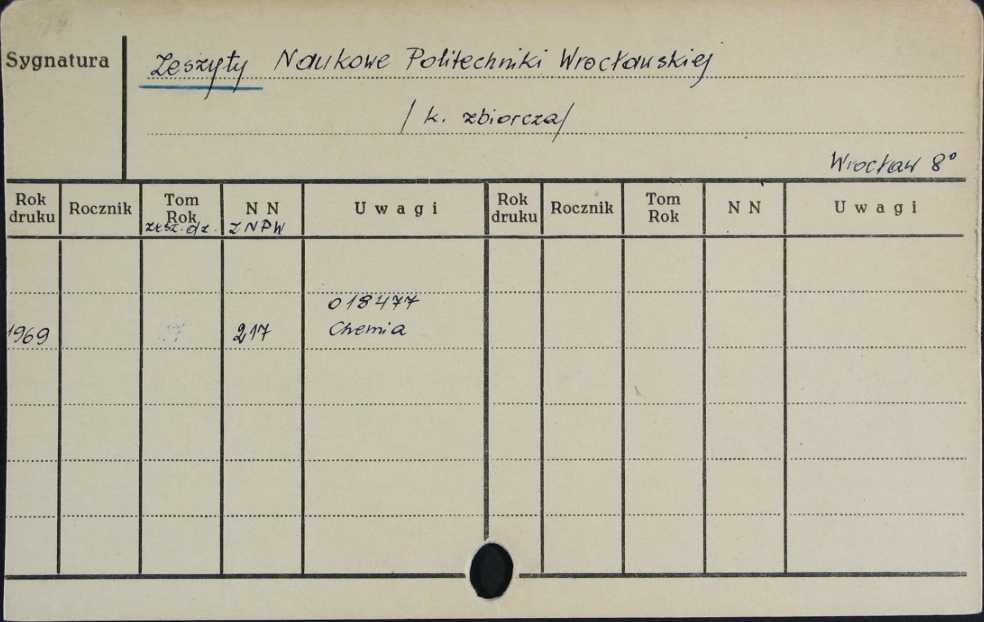 Sygnatura Zeszyty Naukowe Politechniki Wrocławskiej
/ k. zbiorcza/
Wrocław 8°
Rok druku Rocznik Tom Rok zesz. dz. N N ZNPW Uwagi Rok druku Rocznik Tom Rok N N Uwagi
018477
1969 217 Chemia